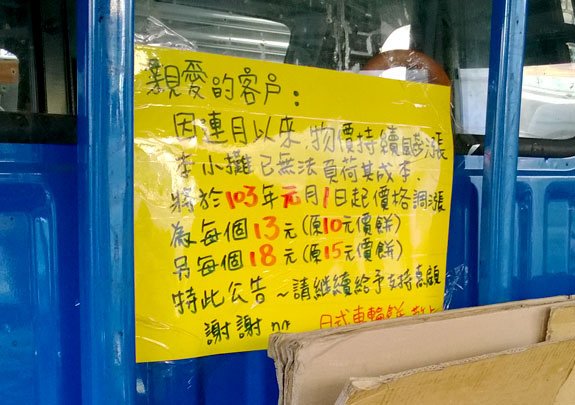 親愛的客戶：
因連月以來，物價持續飆漲
李小攤已無法負荷其成本.
將於103年元月1日起價格調漲
為每個13元(原10元價餅)
另每個18元(原15元價餅)
特此公告～請繼續給予支持惠顧
謝謝
日式車輪餅